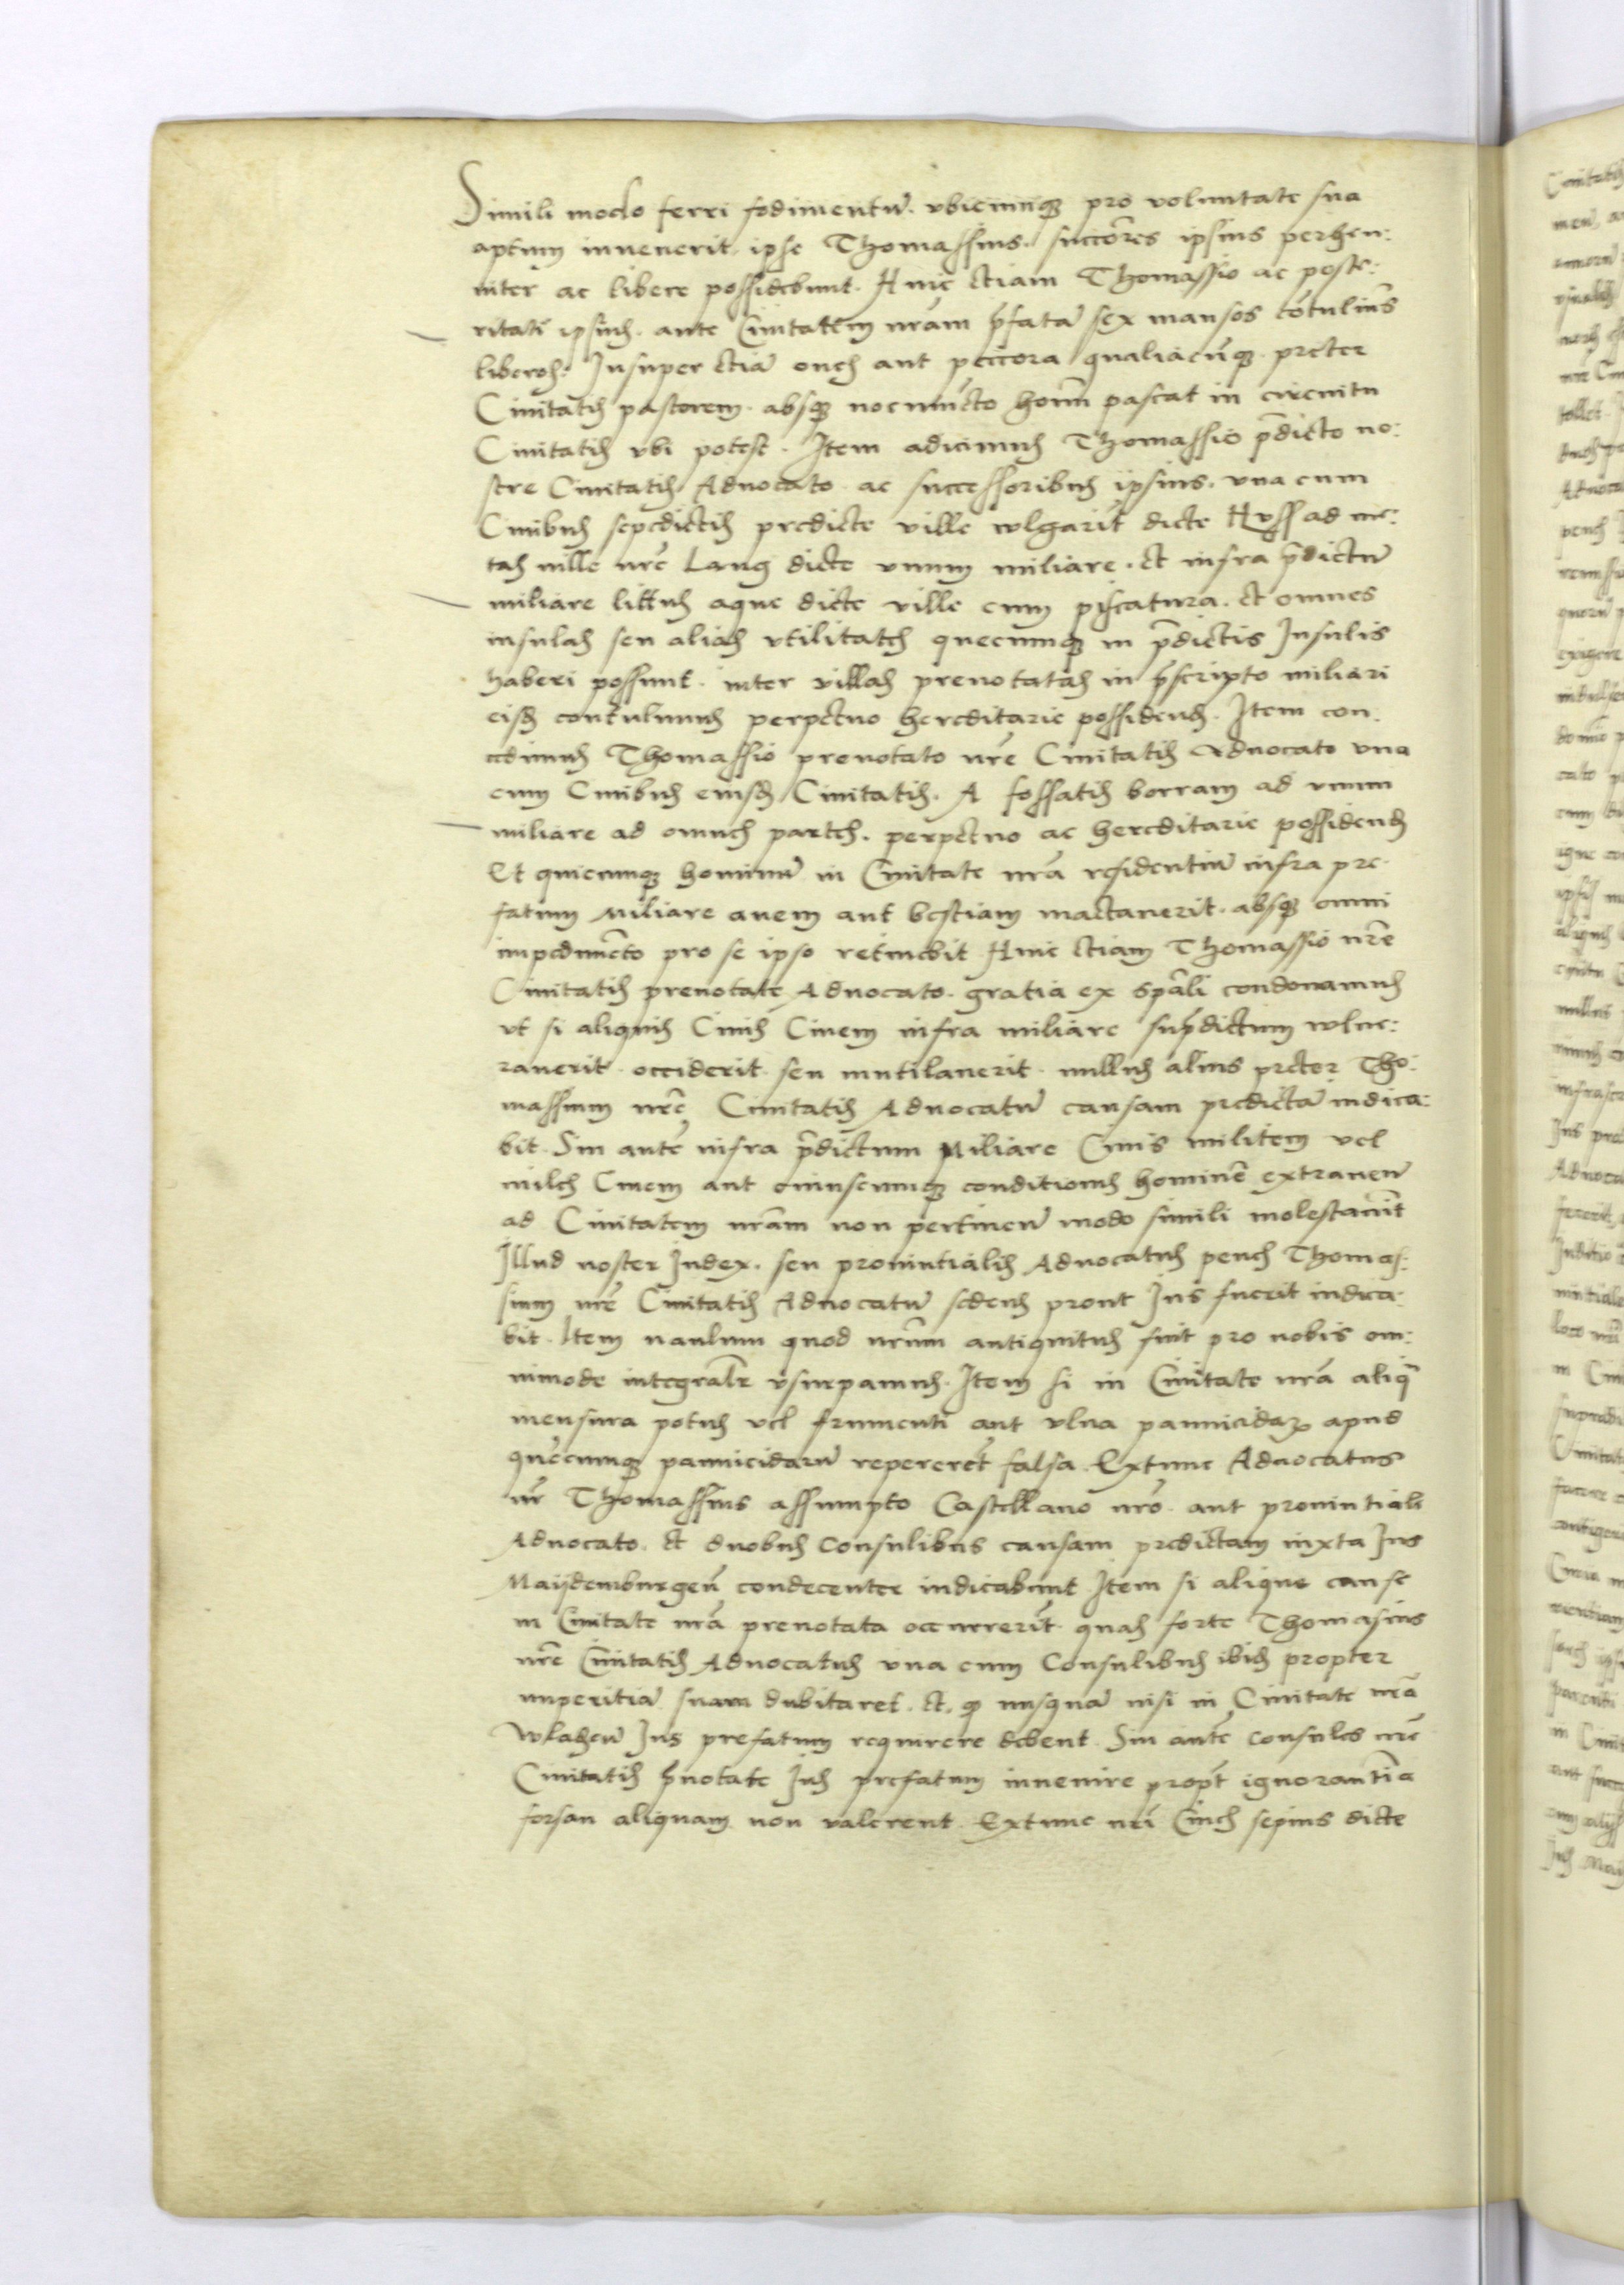 Simili modo ferri fodimentũ. vbicunq₃ pro voluntate sua
aptum inuenerit, ipse Thomassius. succores ipsius perhen:
niter ac libere possidebunt. Huic etiam Thomassio ac poste:
ritati ipsius. ante Ciuitatem nrãm p̃fatã sex mansos cõtulim̃s
liberos. Insuper etiã oues aut peccora qualiacũq₃. preter
Ciuitatis pastorem. absq₃ nocumẽto hoĩm pascat in circuitu
Ciuitatis vbi potest. Item adicimus Thomassio p̃dicto no:
stre Ciuitatis Aduocato ac successoribus ipsius. vna cum
Ciuibus sepedictis predicte ville wlgarit̃ dicte Hyss ad me:
tas uille nrẽ Lang dicte vnum miliare. et infra p̃dictũ
miliare littus aque dicte ville cum piscatura. et omnes
insulas seu alias vtilitates quecunq₃ in p̃dictis Insulis
haberi possunt. inter villas prenotatas in p̃scripto miliari
eisd contulimus perpetuo hereditarie possidend. Item con:
cedimus Thomassio prenotato nrẽ Ciuitatis Aduocato vna
cum Ciuibus eiusd Ciuitatis. A fossatis borram ad vnum
miliare ad omnes partes. perpetuo ac hereditarie possidend
Et quicunq₃ hominũ in Ciuitate nrã residentiũ infra pre
fatum Miliare auem aut bestiam mactauerit. absq₃ omni
impedimẽto pro se ipso retinebit Huic etiam Thomassio nrẽ
Ciuitatis prenotate Aduocato. gratia ex spãli condonamus
vt si aliquis Ciuis Ciuem infra miliare sup̃dictum wlne:
rauerit. occiderit. seu mutilauerit. nullus alius preter Tho:
massium nrẽ Ciuitatis Aduocatũ causam predictã iudica:
bit. Sin autẽ infra p̃dictum Miliare Ciuis militem vel
miles Ciuem aut cuiuscunq₃ conditionis hominẽ extraneũ
ad Ciuitatem nrãm non pertinen̄ modo simili molestauit̃
Illud noster Iudex. seu prouintialis Aduocatus penes Thomas:
sium nrẽ Ciuitatis Aduocatũ sedens prout Ius fuerit iudica:
bit. Item naulum quod nrũm antiquitus fuit pro nobis om:
nimode integralr̃ vsurpamus. Item si in Ciuitate nrã aliq̃
mensura potus vel frumenti aut vlna pannicidaꝝ apud
quẽcunq₃ pannicidarũ repereret̃ falsa. Extunc Aduocatus
nr̃ Thomassius assumpto Castellano nrõ. aut prouintiali
Aduocato. et duobus Consulibus causam predictam iuxta Ius
Maijdemburgen̄ condecenter iudicabunt Item si alique cause
in Ciuitate nrã prenotata occurrerĩt. quas forte Thomasius
nrẽ Ciuitatis Aduocatus vna cum Consulibus ibid propter
imperitiã suam dubitaret. et. ꝙ nusquã nisi in Ciuitate nrã
Wlahen̄ Ius prefatum requirere debent. Sin autẽ consules nrẽ
Ciuitatis p̃notate Ius prefatum inuenire propt̃ ignorantiã
forsan aliquam non valerent. Extunc nrĩ Ciues sepius dicte